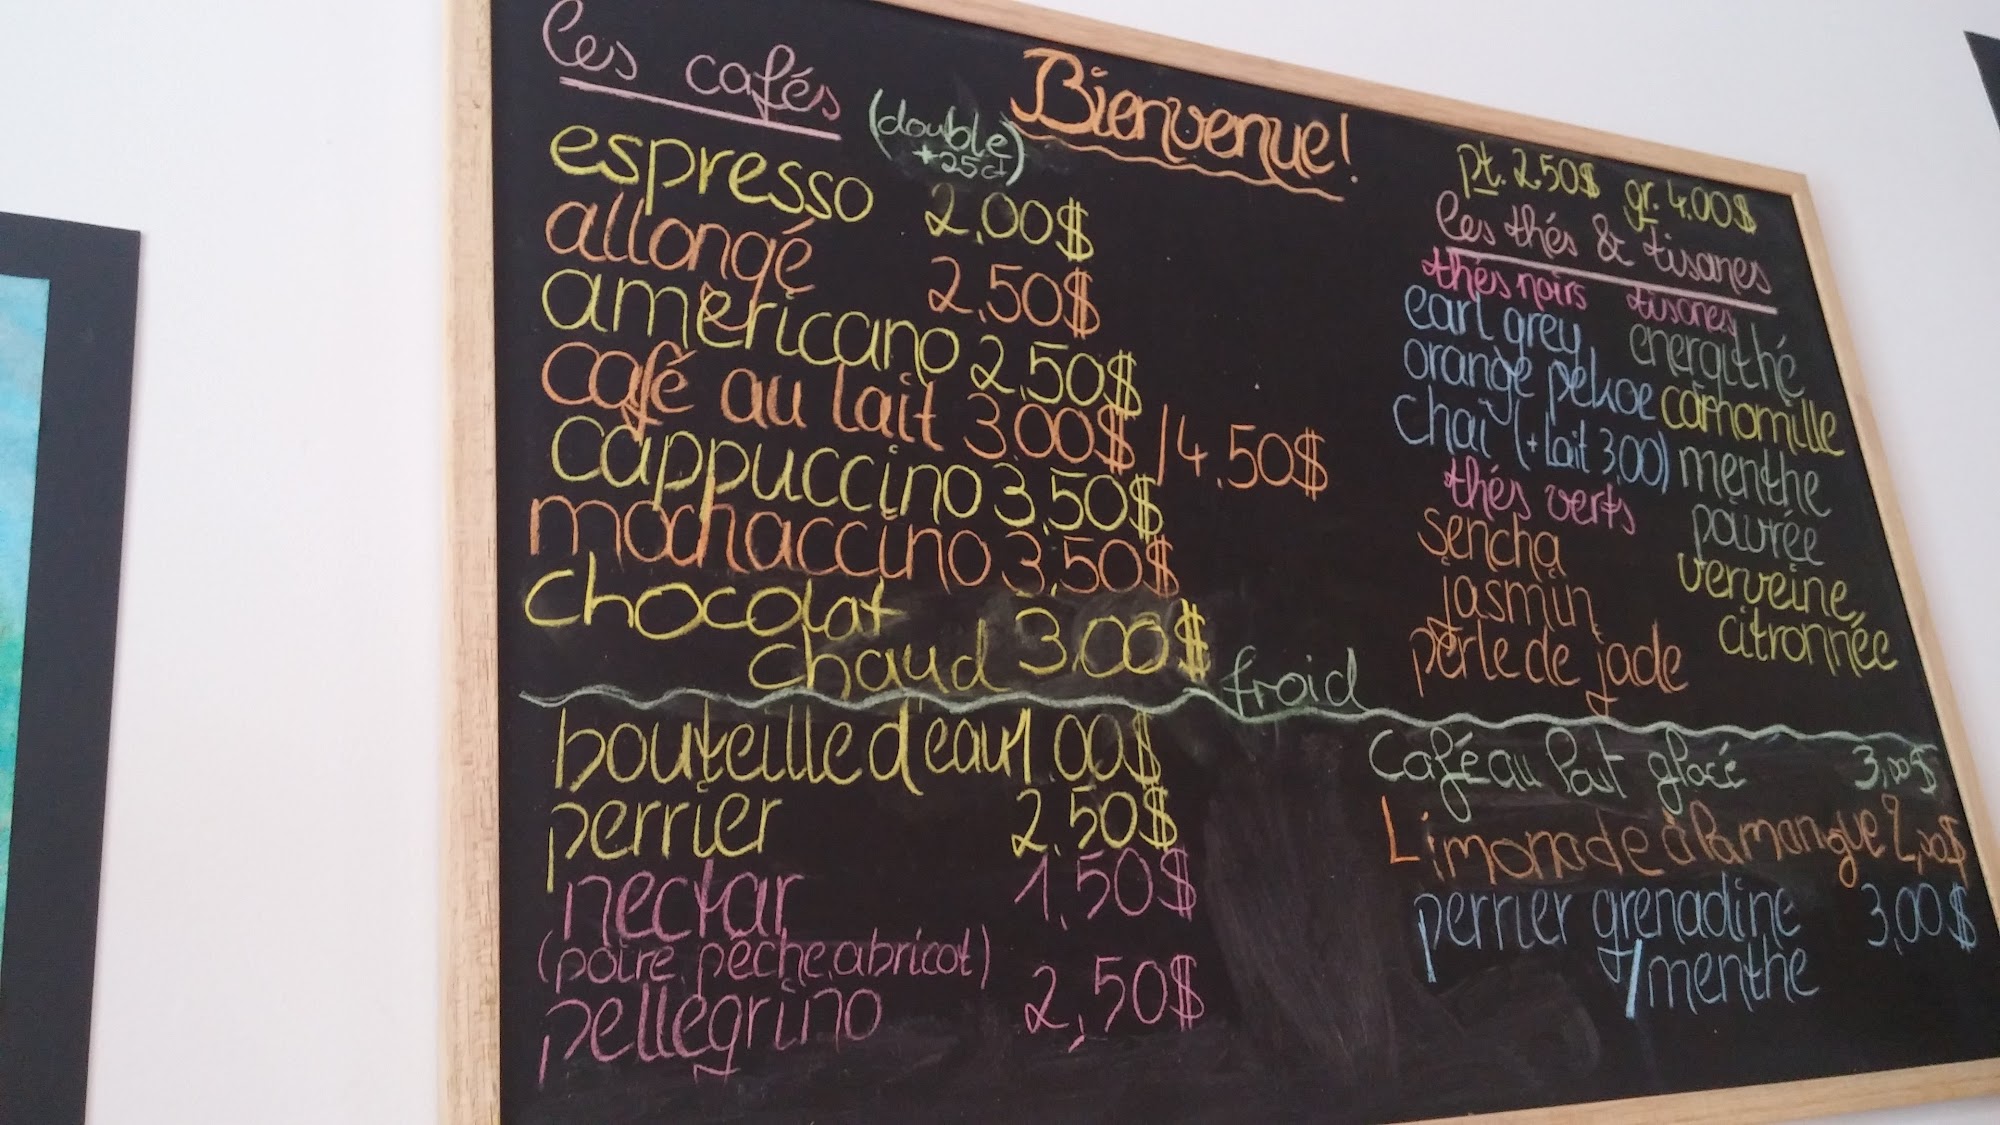 les cafés
(double
+25ct)
Bienvenue!
espresso 2.00$
allongé 2.50$
americano 2.50$
café au lait 3.00$ / 4.50$
cappuccino 3.50$
mochaccino 3.50$
chocolat
chaud 3.00$
pt. 2.50$ gr. 4.00$
les thés & tisanes
thés noirs
earl grey
orange pekoe
chaï (+lait 3.00)
thés verts
sencha
jasmin
perle de jade
tisanes
energithé
camomille
menthe
poivrée
verveine
citronnée
froid
bouteille d'eau 1.00$
perrier 2.50$
nectar 1.50$
(poire, pêche, abricot)
pellegrino 2,50$
Café au lait glacé 3,00$
Limonade à la mangue 2,00$
perrier grenadine 3,00$
/menthe